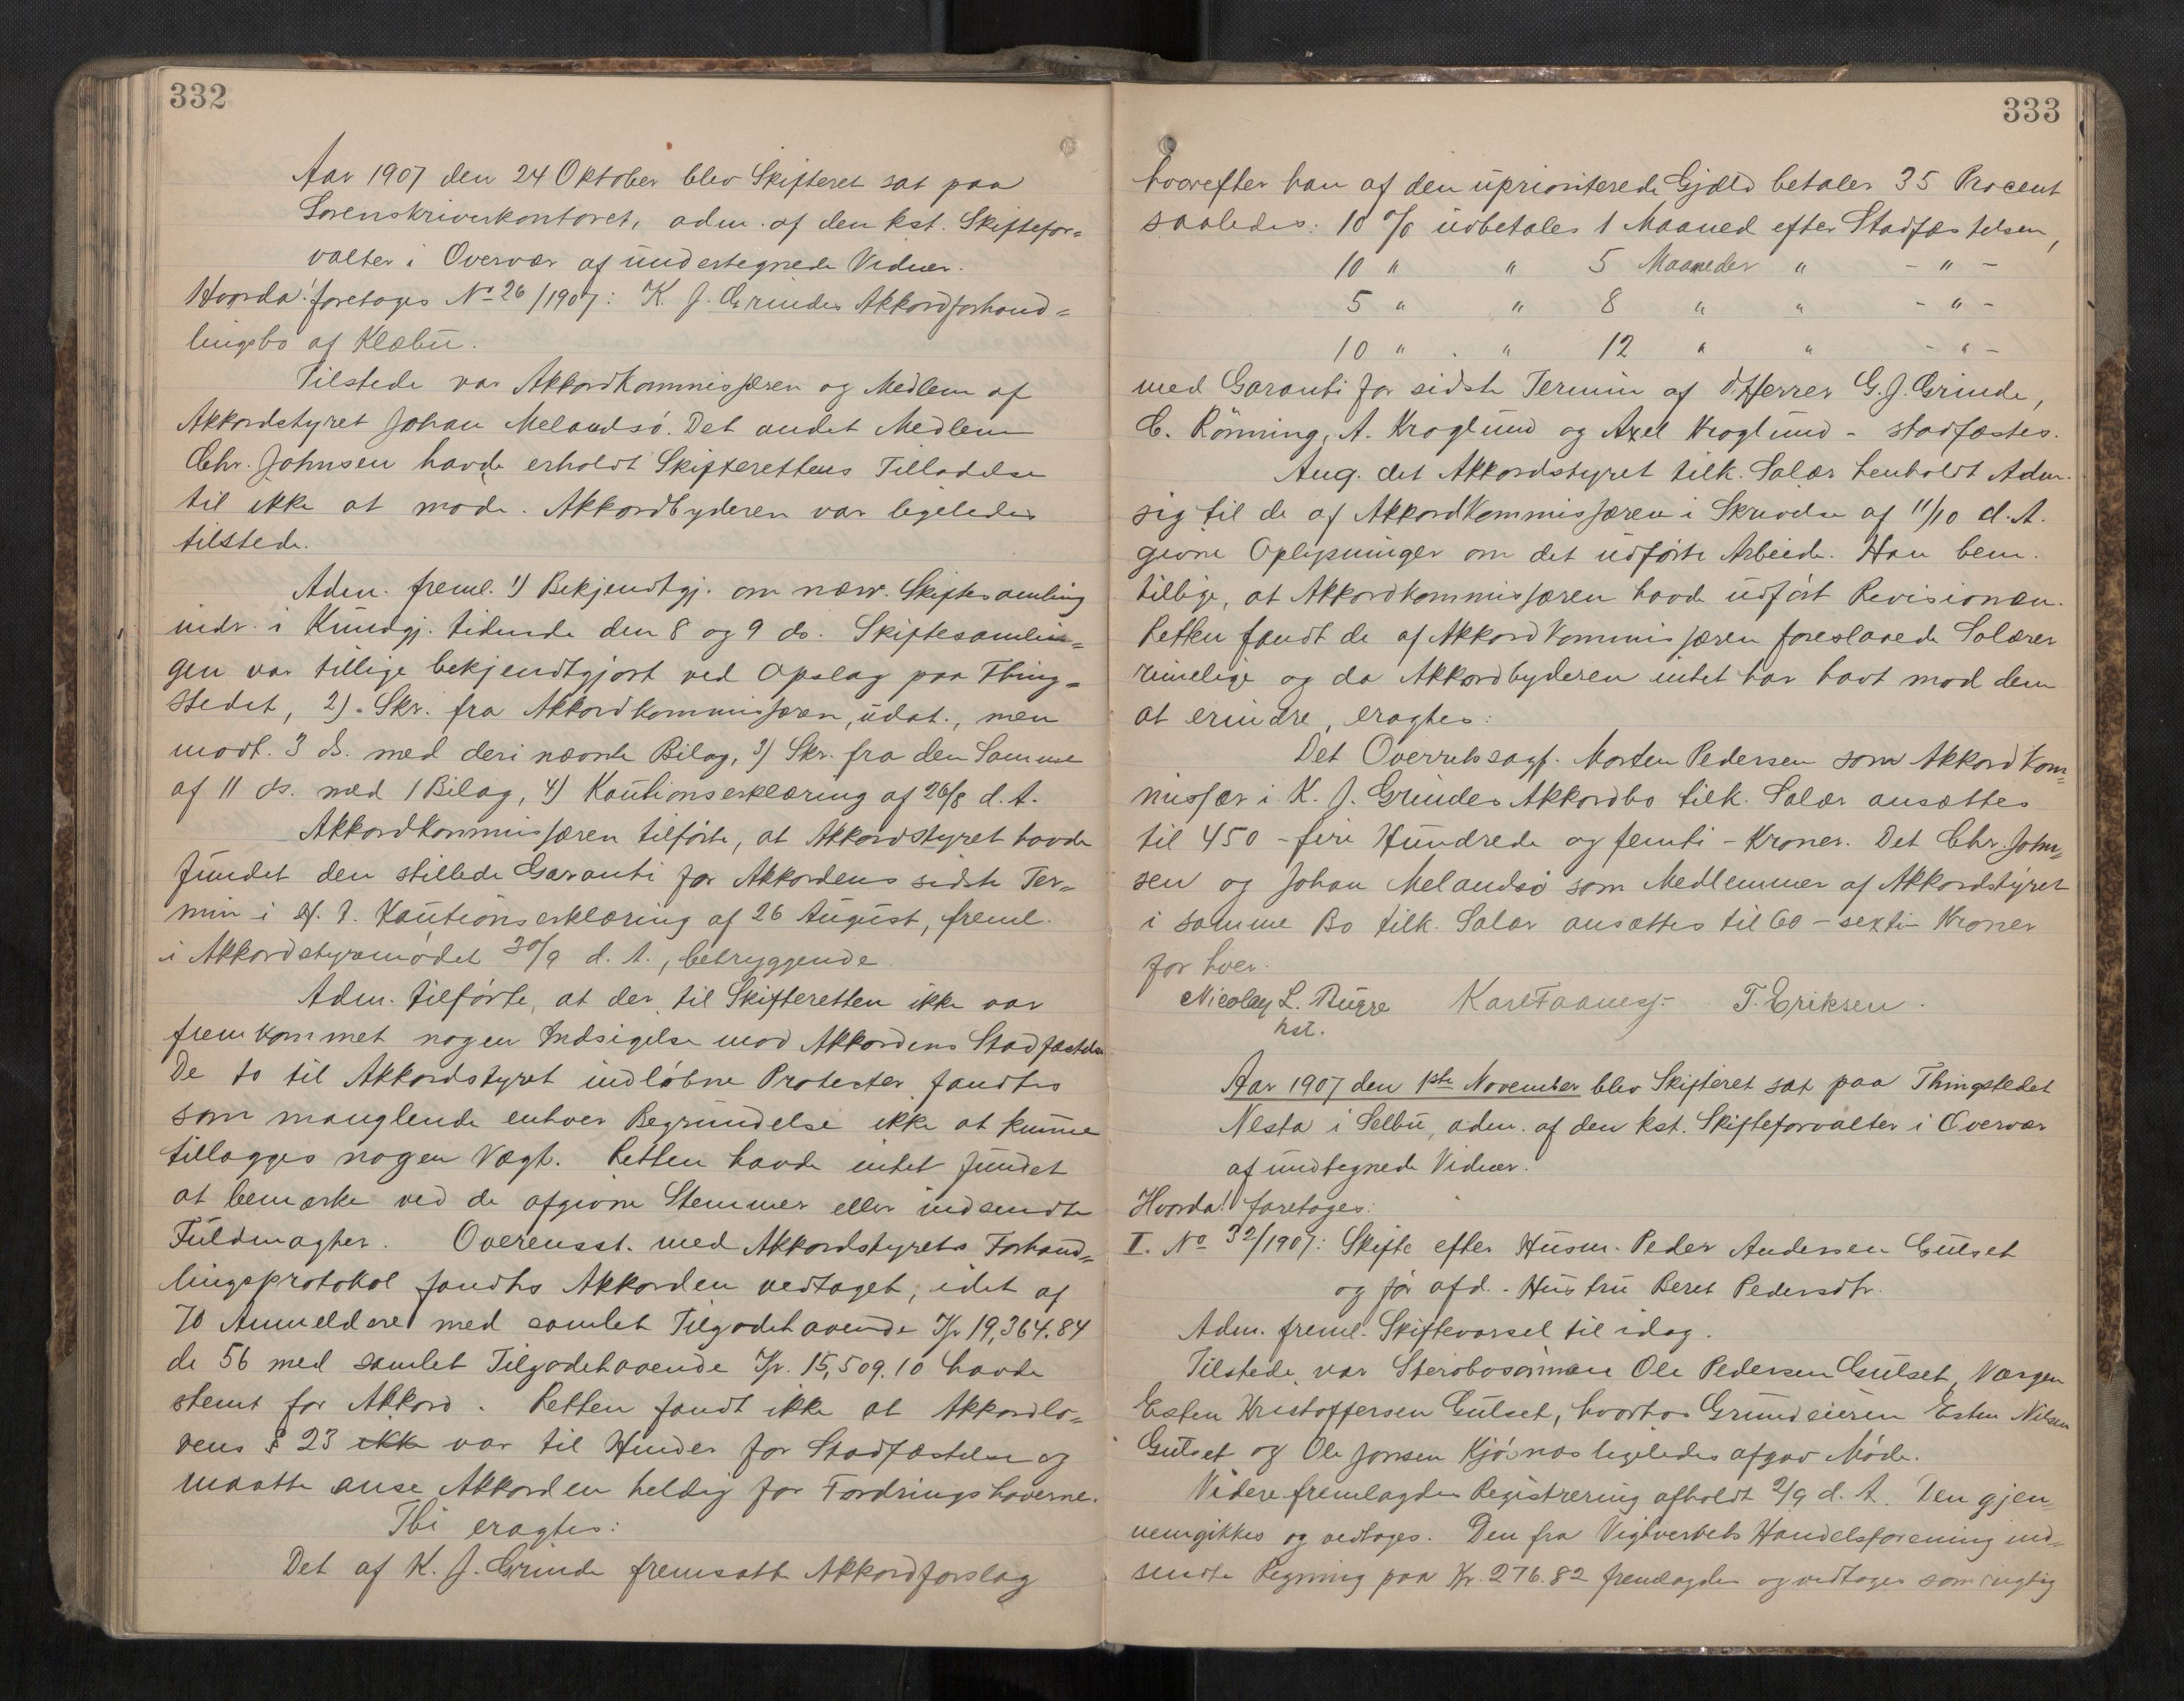 332
Aar 1907 den 24 Oktober blev Skifteret sat paa
Sorenskriverkontoret, adm. af den kst. Skiftefor=
valter i Overvær af undertegnede Vidner.
Hvorda! foretoges No 26/1907: K. J. Grindes Akkordforhand=
lingsbo af Klæbu.
Tilstede var Akkordkommissæren og Medlem af
Akkordstyret Johan Melandsö. Det andet Medlem
Chr. Johnsen havde erholdt Skifterettens Tilladelse
til ikke at møde. Akkordbyderen var ligeledes
tilstede.
Adm. freml. 1) Bekjendtgj. om nærv. Skiftesamling
indr. i Kundgj. tidende den 8 og 9 ds. Skiftesamlin=
gen var tillige bekjendtgjort ved Opslag paa Thing=
stedet, 2). Skr. fra Akkordkommissæren, udat., men
modt. 3 ds. med deri nævnte Bilag, 3) Skr. fra den Samme
af 11 ds. med 1 Bilag, 4) Kautionserklæring af 26/8 d. A.
Akkordkommissæren tilførte, at Akkordstyret havde
fundet den stillede Garanti for Akkordens sidste Ter=
min i H. t. Kautionserklæring af 26 August, freml.
i Akkordstyremödet 30/9 d. A., betryggende.
Adm. tilførte, at der til Skifteretten ikke var
fremkommet nogen Indsigelse mod Akkordens Stadfæstelse.
De to til Akkordstyret indløbne Protester fandtes
som manglende enhver Begrundelse ikke at kunne
tillægges nogen Vægt. Retten havde intet fundet
at bemærke ved de afgivne Stemmer eller indsendte
Fuldmagter. Overensst. med Akkordstyrets Forhand=
lingsprotokol fandtes Akkorden vedtaget, idet af
70 Anmeldere med samlet Tilgodehavende Kr 19,364.84
de 56 med samlet Tilgodehavende Kr. 15,509.10 havde
stemt for Akkord. Retten fandt ikke at Akkordlo=
vens § 23 ikke var til Hinder for Stadfæstelse og
maatte anse Akkorden heldig for Fordringshaverne.
Thi eragtes:
Det af K. J. Grinde fremsatte Akkordforslag
333
hvorefter han af den uprioriterede Gjæld betaler 35 Procent
saaledes: 10 % udbetales 1 Maaned efter Stadfæstelsen,
10 " " 5 Maaneder " - " -
5 " " 8 " " - " -
10 " " 12 " " - " -
med Garanti for sidste Termin af d'Herrer G. J. Grinde,
C. Rönning, A. Kroglund og Axel Kroglund - stadfæstes.
Ang. det Akkordstyret tilk. Salær henholdt Adm.
sig til de af Akkordkommissæren i Skrivelse af 11/10 d. A.
givne Oplysninger om det udførte Arbeide. Han bem.
tillige, at Akkordkommissæren havde udført Revisionen.
Retten fandt de af Akkordkommissæren foreslaaede Salærer
rimelige og da Akkordbyderen intet har havt mod dem
at erindre, eragtes:
Det Overretssagf. Morten Pedersen som Akkordkom=
missær i K. J. Grindes Akkordbo tilk. Salær ansættes
til 450 - fire Hundrede og femti - Kroner. Det Chr. John=
sen og Johan Melandsö som Medlemmer af Akkordstyret
i samme Bo tilk. Salær ansættes til 60 - sexti - Kroner
for hver.
Nicolay L. Bugge Karl Faanes T. Eriksen.
kst.
Aar 1907 den 1ste November blev Skifteret sat paa Thingstedet
Nesta i Selbu, adm. af den kst. Skifteforvalter i Overvær
af undtegnede Vidner.
Hvorda! foretoges:
I. No 32/1907: Skifte efter Husm. Peder Andersen Gulset
og før afd. Hustru Beret Pedersdtr.
Adm. freml. Skiftevarsel til idag.
Tilstede var Stervbosönnen Ole Pedersen Gulset, Værgen
Esten Kristoffersen Gulset, hvorhos Grundeieren Esten Nilsen
Gulset og Ole Jonsen Kjösnæs ligeledes afgav Møde.
Videre fremlagdes Registrering afholdt 2/9 d. A. Den gjen=
nemgikkes og vedtoges. Den fra Vigbverkets Handelsforening ind=
sendte Regning paa Kr. 276.82 fremlagdes og vedtoges som rigtig